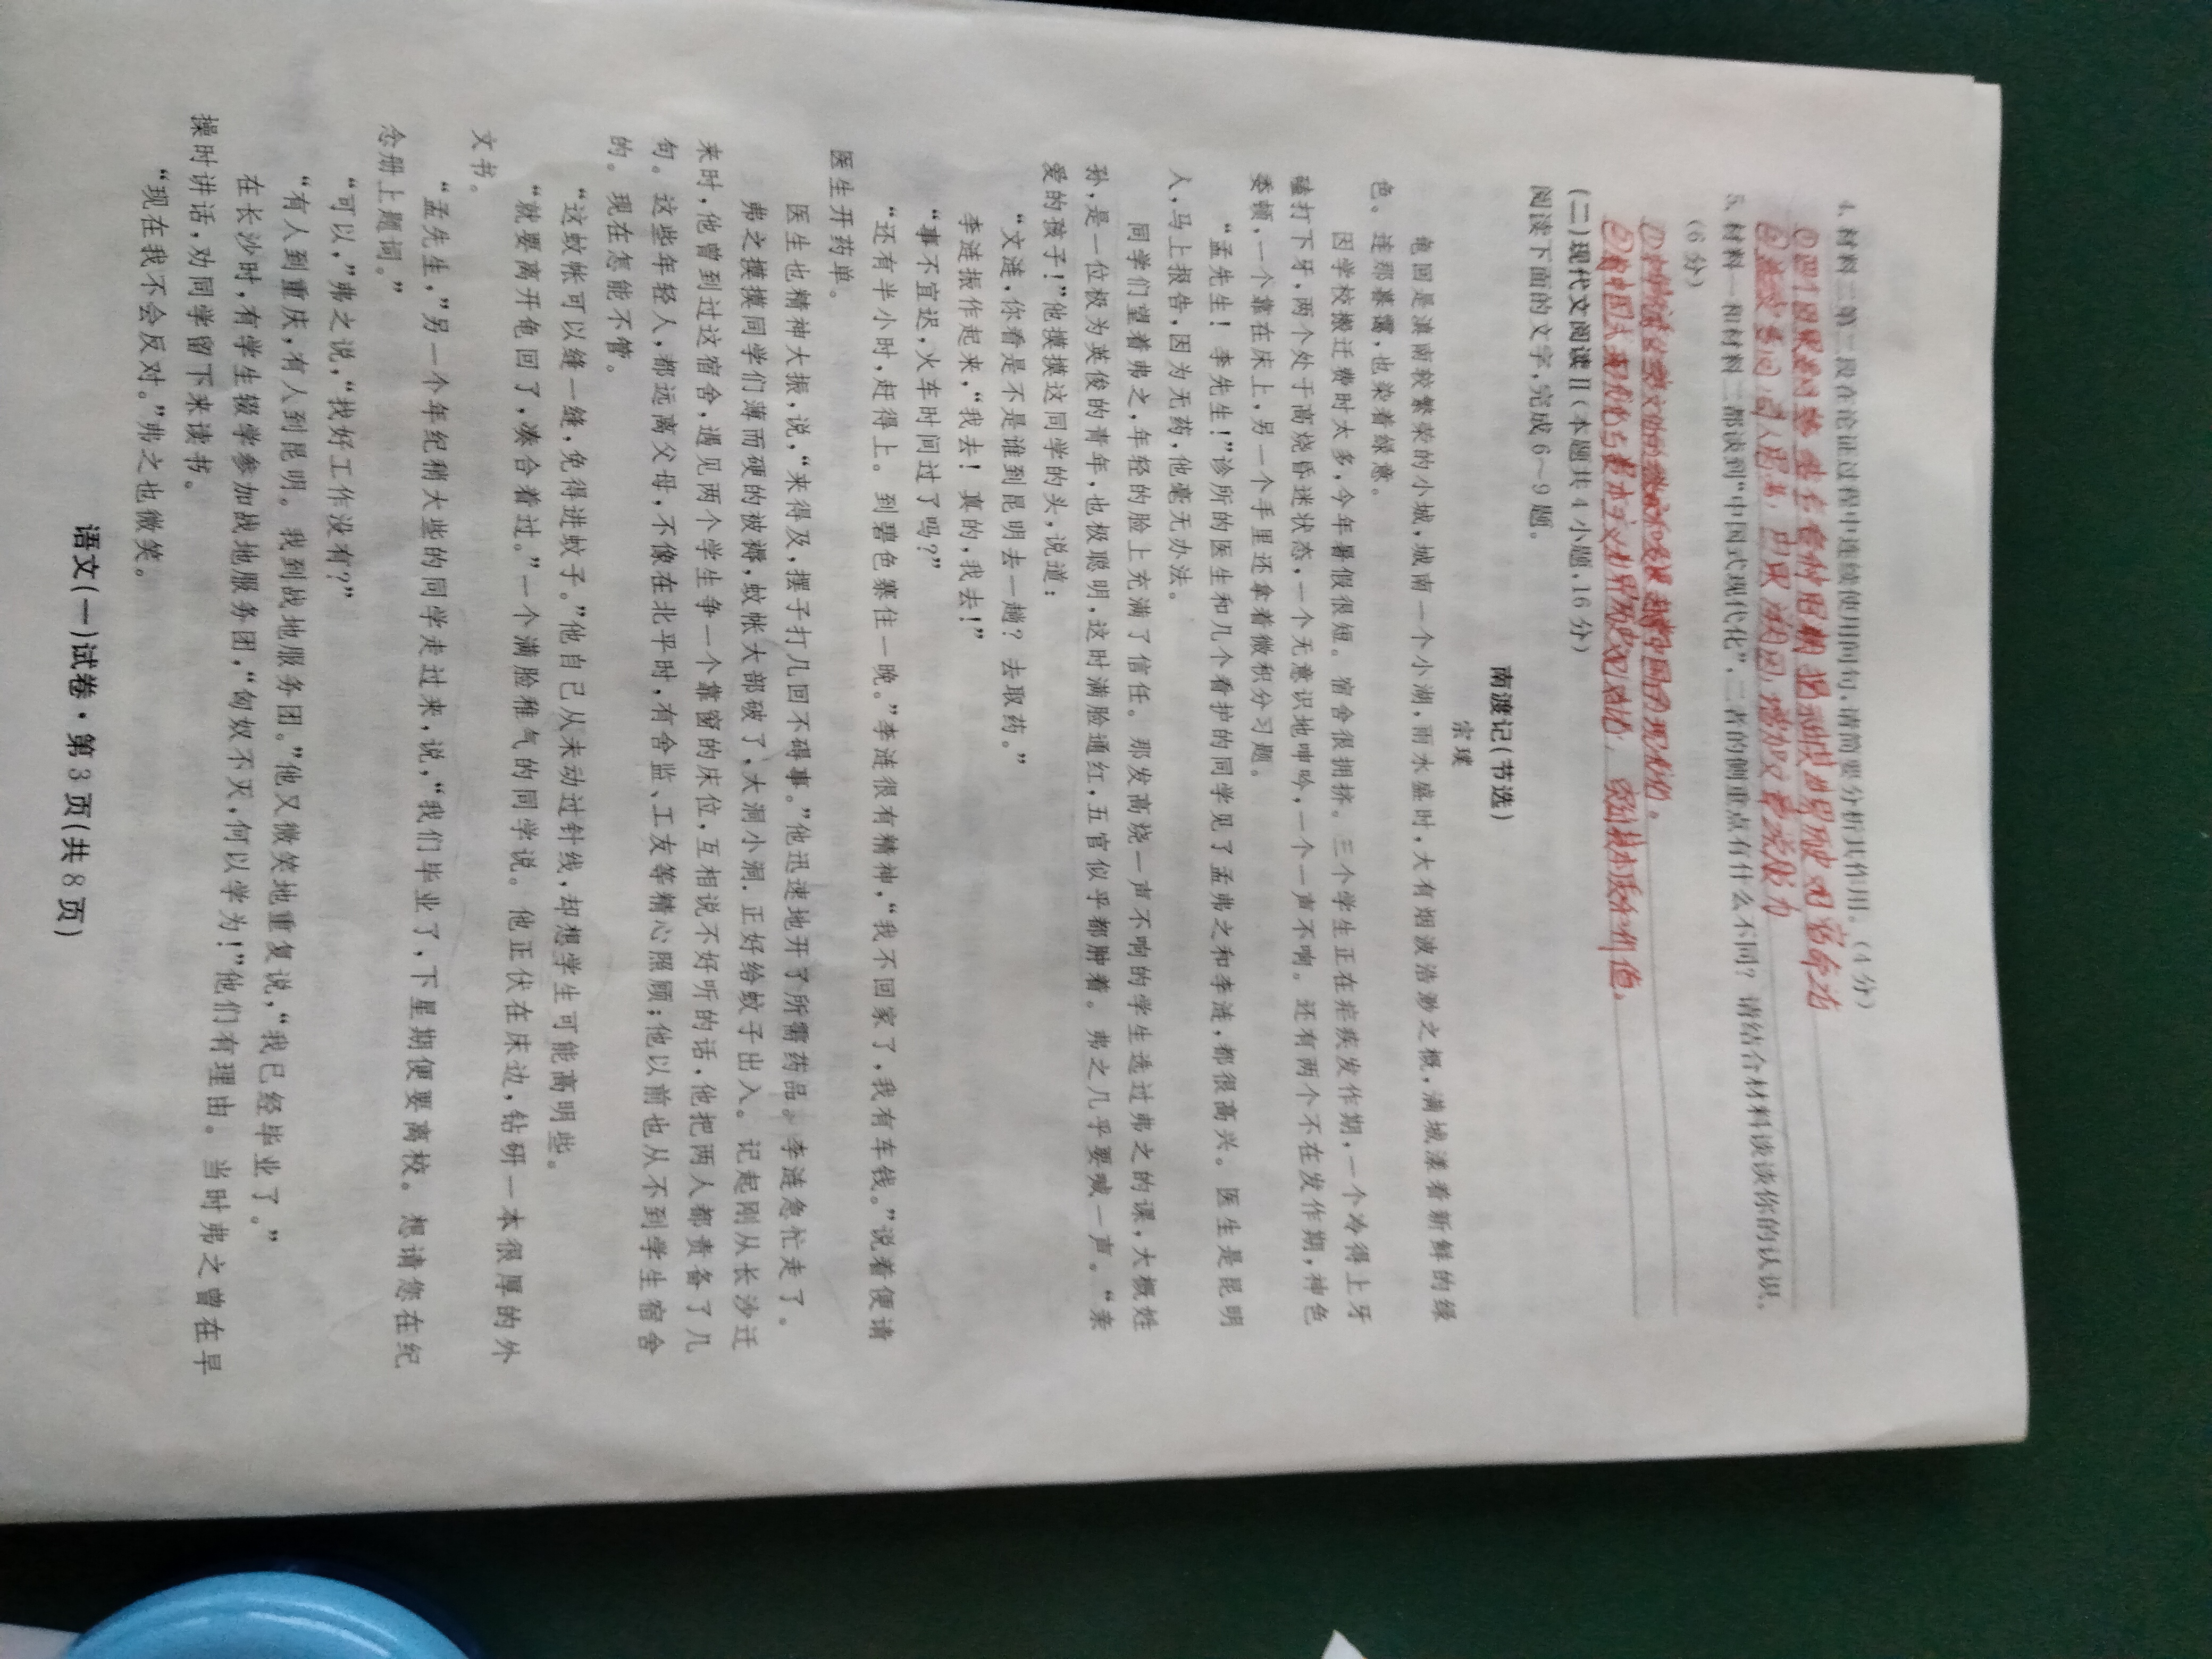 4. 材料二第二段在论证过程中连续使用问句,请简要分析其作用。(4分)
5. 材料一和材料二都谈到“中国式现代化”,二者的侧重点有什么不同?请结合材料谈谈你的认识。
(6分)
(二)现代文阅读Ⅱ(本题共4小题,16分)
阅读下面的文字,完成6~9题。
南渡记(节选)
宗璞
龟回是滇南较繁荣的小城,城南一个小湖,雨水盛时,大有烟波浩渺之概,满城漾着新鲜的绿
色。连那暮霭,也染着绿意。
因学校搬迁费时太多,今年暑假很短。宿舍很拥挤。三个学生正在疟疾发作期,一个冷得上牙
磕打下牙,两个处于高烧昏迷状态,一个无意识地呻吟,一个一声不响。还有两个不在发作期,神色
委顿,一个靠在床上,另一个手里还拿着微积分习题。
“孟先生!李先生!”诊所的医生和几个看护的同学见了孟弗之和李涟,都很高兴。医生是昆明
人,马上报告,因为无药,他毫无办法。
同学们望着弗之,年轻的脸上充满了信任。那发高烧一声不响的学生选过弗之的课,大概姓
孙,是一位极为英俊的青年,也极聪明,这时满脸通红,五官似乎都肿着。弗之几乎要喊一声。“亲
爱的孩子!”他摸摸这同学的头,说道:
“文涟,你看是不是谁到昆明去一趟?去取药。”
李涟振作起来,“我去!真的,我去!”
“事不宜迟,火车时间过了吗?”
“还有半小时,赶得上。到碧色寨住一晚。”李涟很有精神,“我不回家了,我有车钱。”说着便请
医生开药单。
医生也精神大振,说,“来得及,摆子打几回不碍事。”他迅速地开了所需药品。李涟急忙走了。
弗之摸摸同学们薄而硬的被褥,蚊帐大部破了,大洞小洞,正好给蚊子出入。记起刚从长沙迁
来时,他曾到过这宿舍,遇见两个学生争一个靠窗的床位,互相说不好听的话,他把两人都责备了几
句。这些年轻人,都远离父母,不像在北平时,有舍监、工友等精心照顾;他以前也从不到学生宿舍
的。现在怎能不管。
“这蚊帐可以缝一缝,免得进蚊子。”他自己从未动过针线,却想学生可能高明些。
“就要离开龟回了,凑合着过。”一个满脸稚气的同学说。他正伏在床边,钻研一本很厚的外
文书。
“孟先生,”另一个年纪稍大些的同学走过来,说,“我们毕业了,下星期便要离校。想请您在纪
念册上题词。”
“可以,”弗之说,“找好工作没有?”
“有人到重庆,有人到昆明。我到战地服务团。”他又微笑地重复说,“我已经毕业了。”
在长沙时,有学生辍学参加战地服务团,“匈奴不灭,何以学为!”他们有理由。当时弗之曾在早
操时讲话,劝同学留下来读书。
“现在我不会反对。”弗之也微笑。
语文(一)试卷·第3页(共8页)